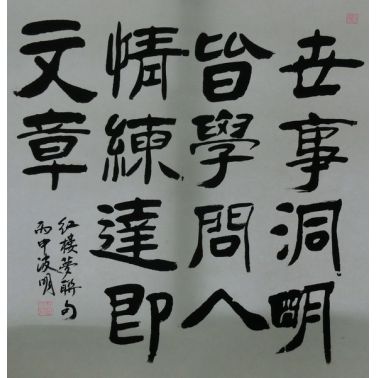 世事洞明
皆學問人
情練達即
文章
紅樓夢聯句
丙申波明